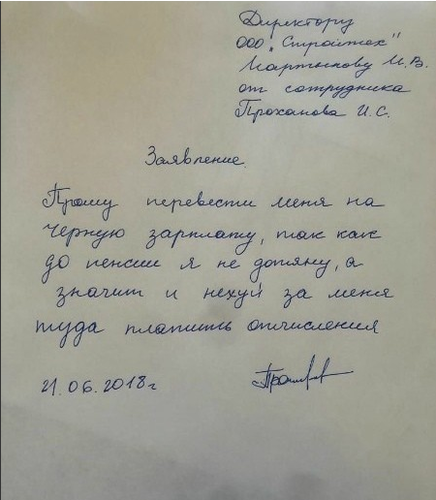 Директору
ООО „Стройтех"
Мартынову И.В.
от сотрудника
Проханова И.С.
Заявление.
Прошу перевести меня на
черную зарплату, так как
до пенсии я не дотяну, а
значит и нехуй за меня
туда платить отчисления
21.06.2018г